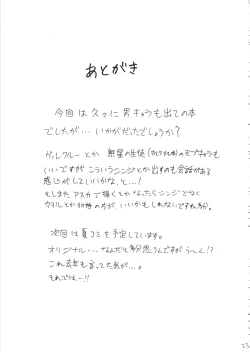 あとがき
今回は久々に男キャラも出ての本
でしたが… いかがだったでしょうか?
ヴィレクルーとか 無名の生徒( )のモブキャラも
いいですがこういうシンジとか出すのも会話がある
感じがしていいかな、と…!
もしまたアスカで描くとかなったらシンジでなく
カヲルとか の方が、いいかもしれないですね
次回は夏コミを予定しています。
オリジナル… なんだと思うんですが う〜ん!?
これ去年も言ってた気が…。
それではー!!
23